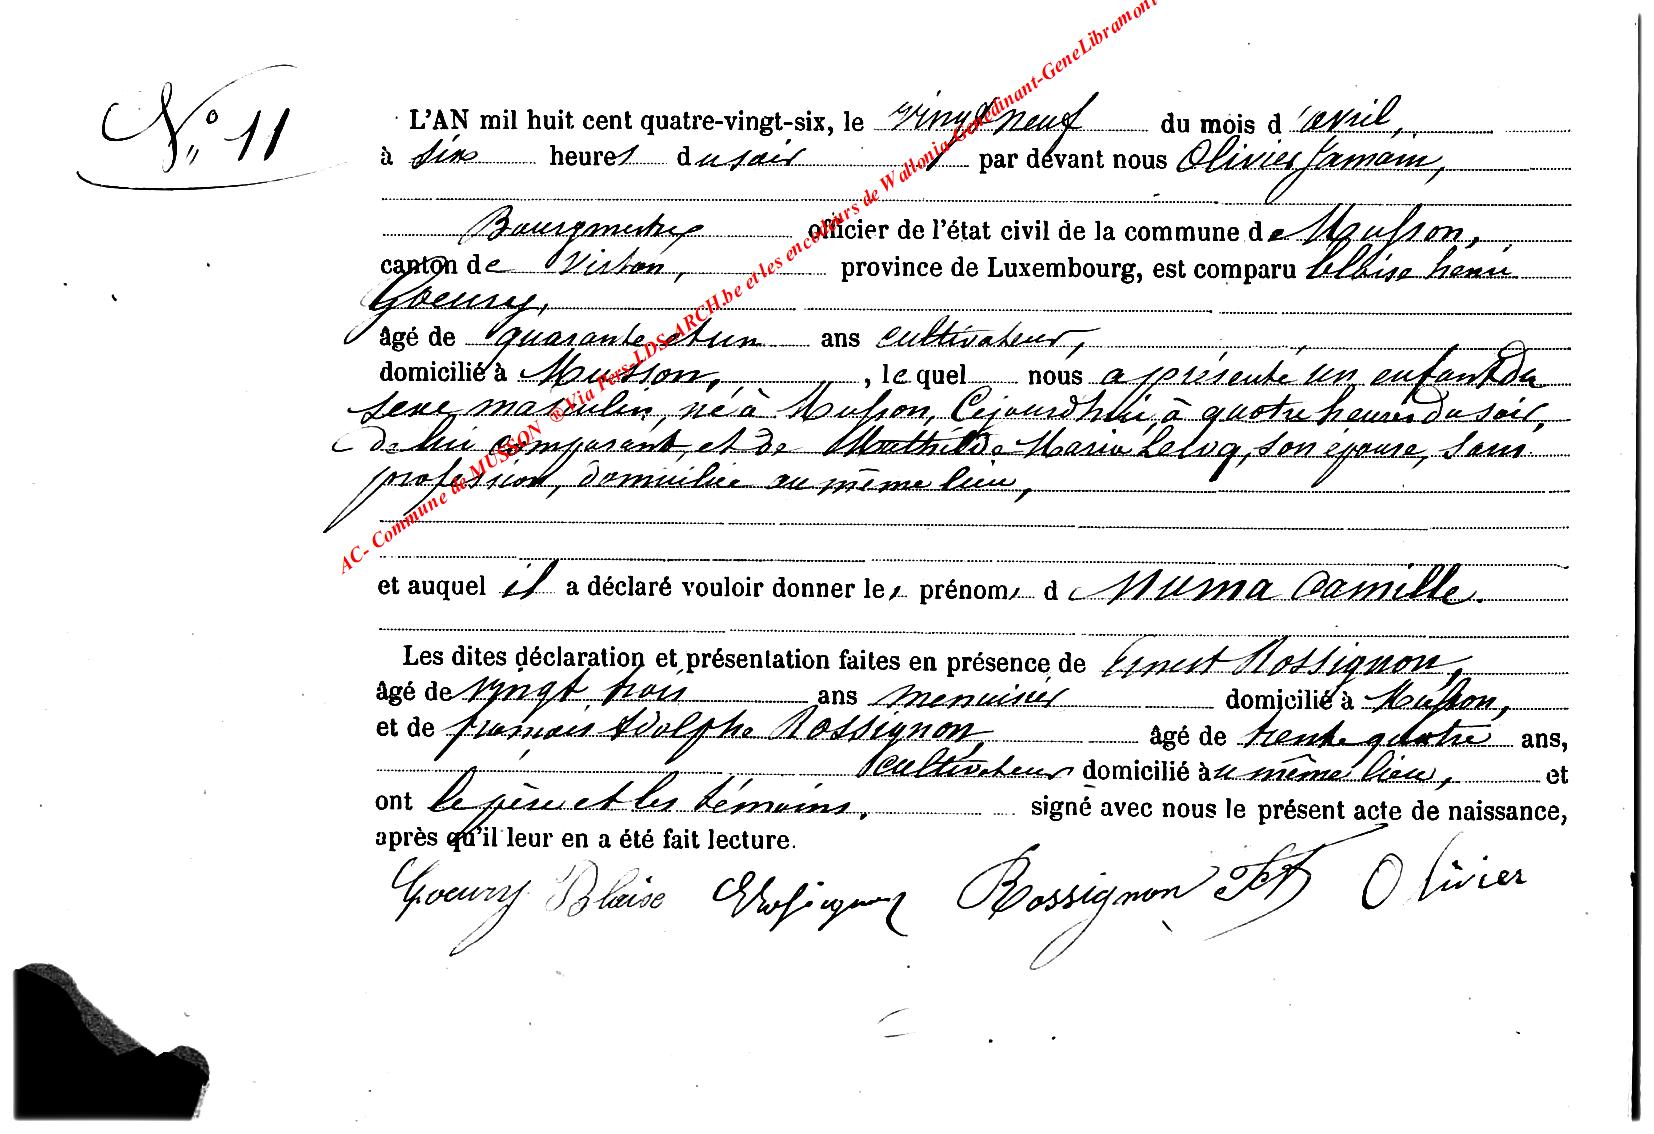 N° 11
L'AN mil huit cent quatre-vingt-six, le vingt neuf du mois d'avril,
à six heures du soir par devant nous Olivier Jamain,
Bourgmestre officier de l'état civil de la commune de Musson,
canton de Virton, province de Luxembourg, est comparu Blaise henri
Goeury,
âgé de quarante et un ans cultivateur,
domicilié à Musson, , le quel nous a présenté un enfant du
sexe masculin, né à Musson, Cejourd'hui, à quatre heures du soir,
de lui comparant, et de Mathilde Maria Lelocq, son épouse, sans
profession, domiciliée au même lieu,
et auquel il a déclaré vouloir donner les prénoms d Numa Camille.
Les dites déclaration et présentation faites en présence de Ernest Rossignon,
âgé de vingt trois ans menuisier domicilié à Musson,
et de françois Adolphe Rossignon, âgé de trente quatre ans,
cultivateur domicilié au même lieu, et
ont le père et les témoins, signé avec nous le présent acte de naissance,
après qu'il leur en a été fait lecture.
Goeury Blaise ERossignon Rossignon FA Olivier
AC- Commune de MUSSON ®Via Pers-LDS-ARCH.be et les encodeurs de Wallonia-Genedinant-GeneLibramont